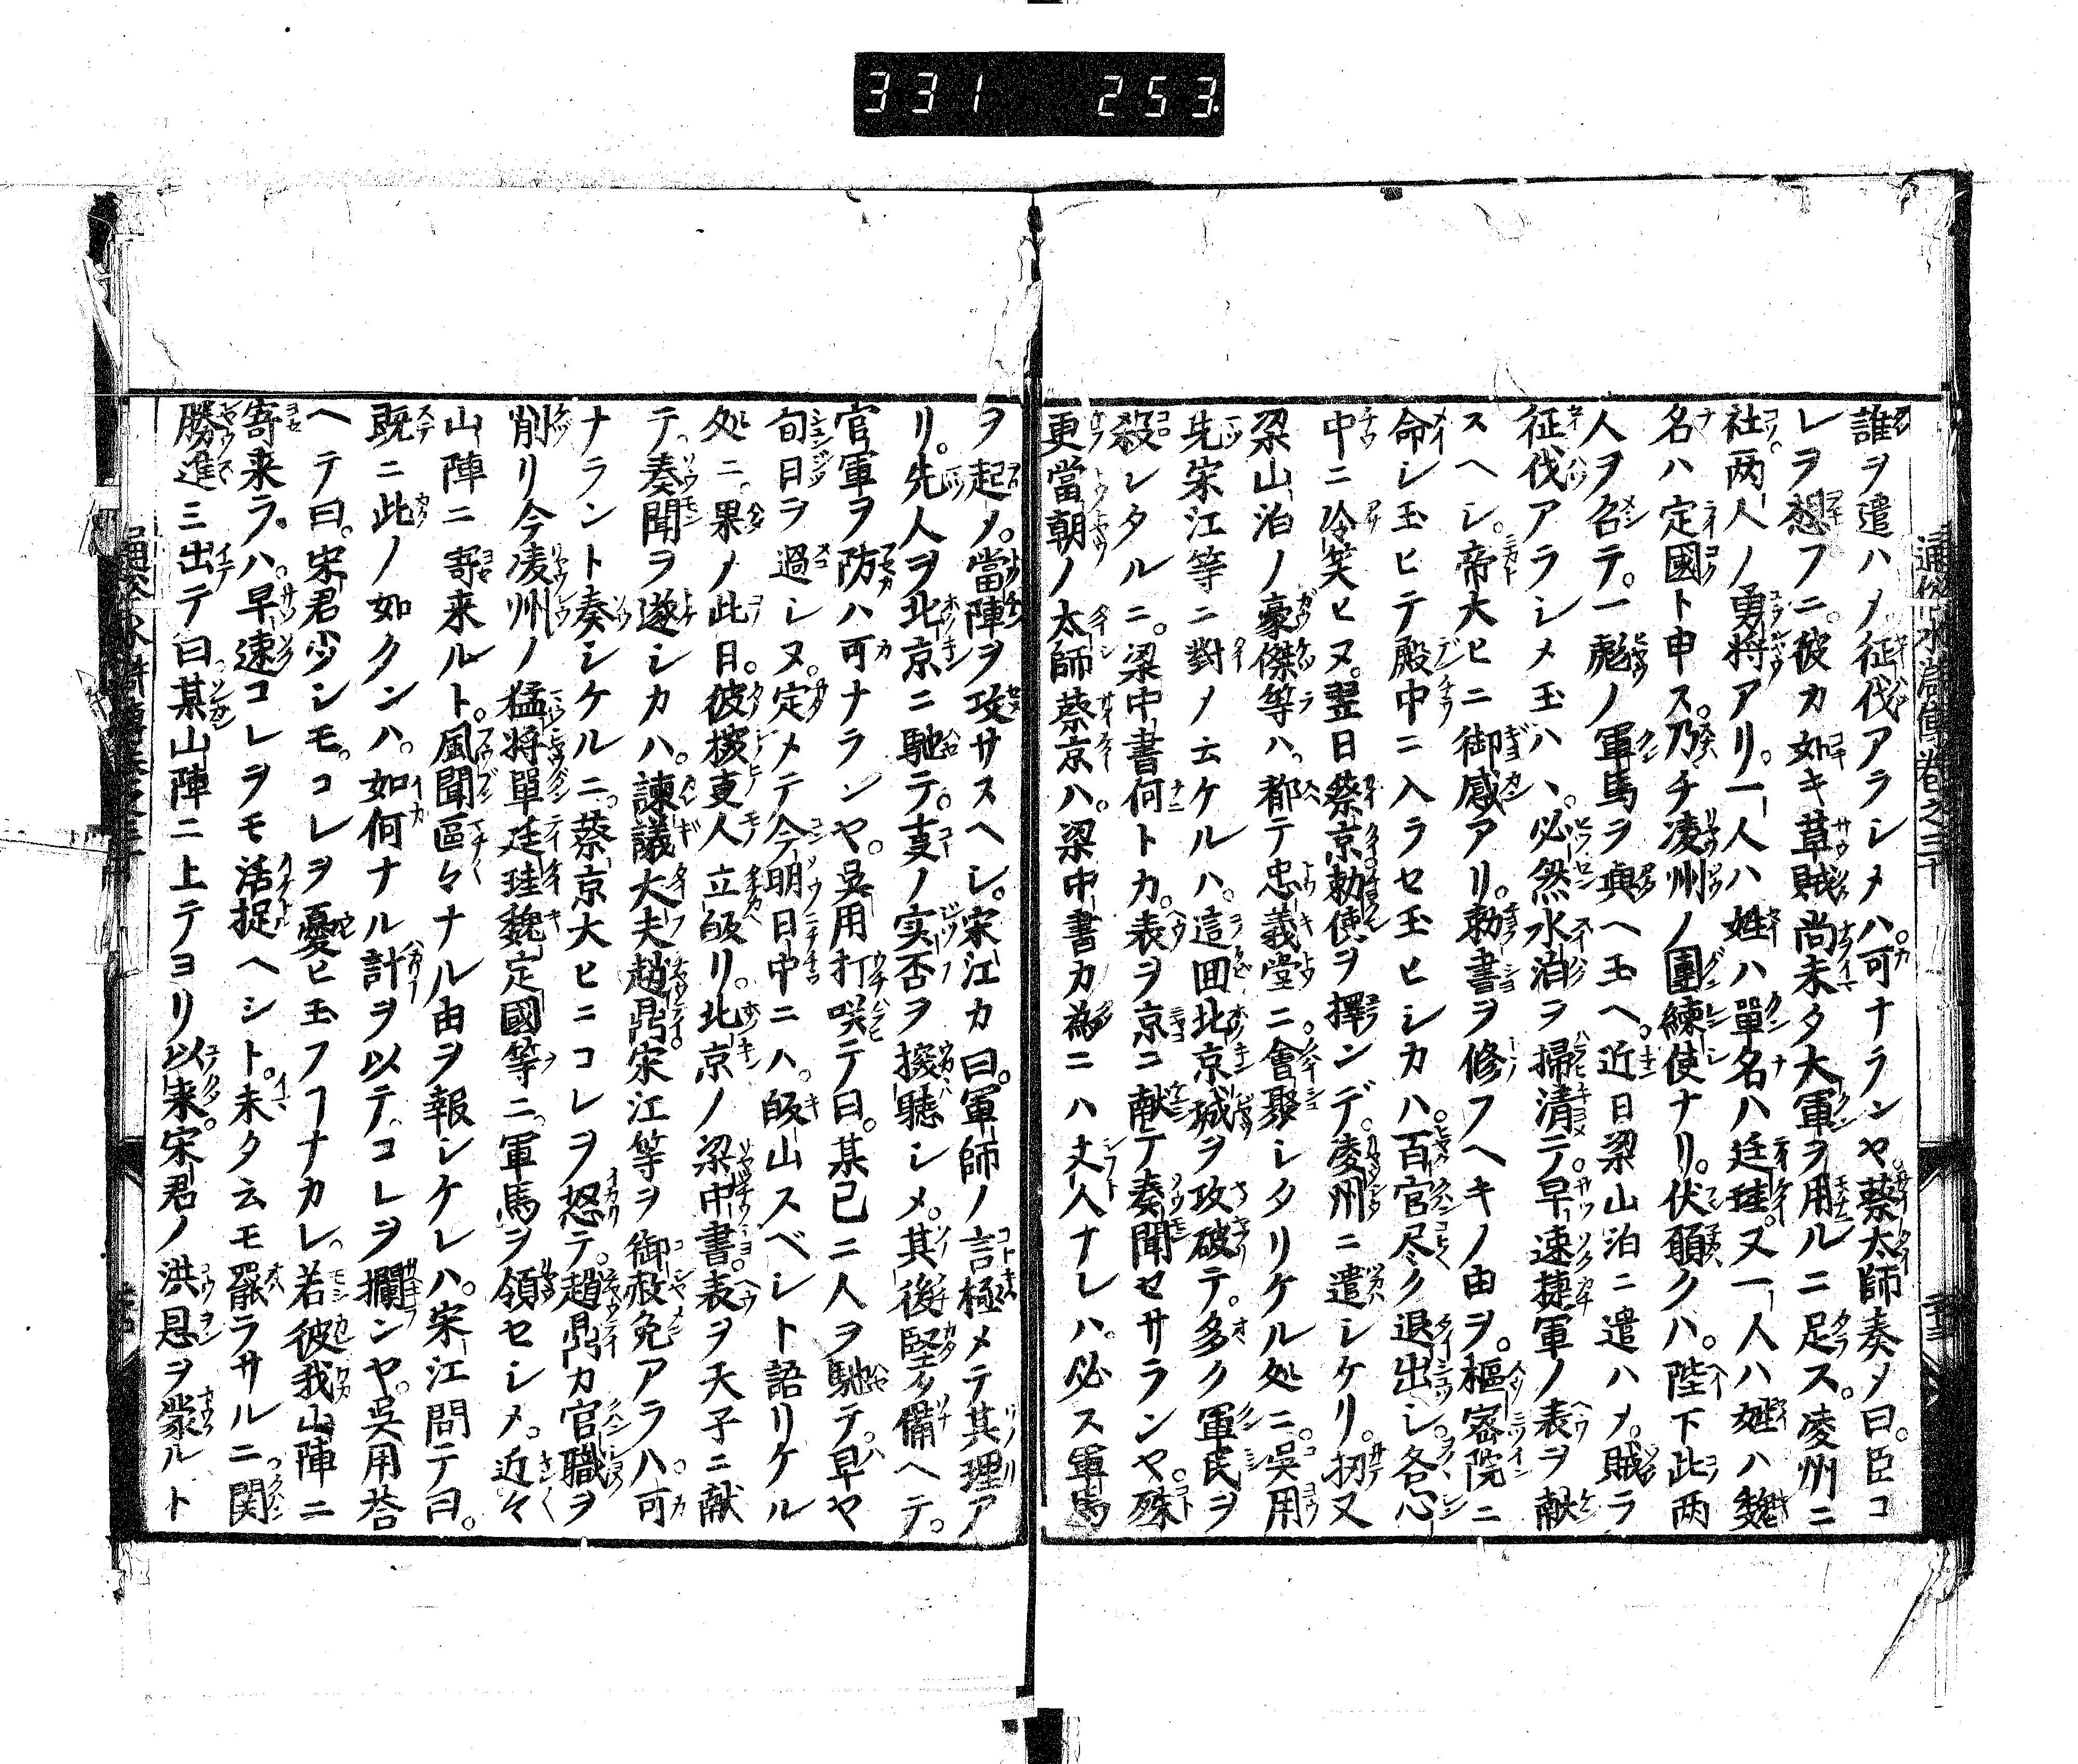 331 253
通俗水滸傳卷之三十
誰ヲ遣ハメ征伐アラシメハ可ナランヤ。蔡太師奏メ曰。臣コ
レヲ想フニ。彼カ如キ草賊尚未タ大軍ヲ用ルニ足ス。凌州ニ
社両人ノ勇将アリ。一人ハ姓ハ單名ハ廷珪。又一人ハ姓ハ魏
名ハ定國ト申ス。乃チ凌州ノ團練使ナリ。伏願クハ。陛下此両
人ヲ召テ。一彪ノ軍馬ヲ與ヘ玉ヘ。近日梁山泊ニ遣ハメ。賊ヲ
征伐アラシメ玉ハヽ。必然水泊ヲ掃清テ。早速捷軍ノ表ヲ献
スヘシ。帝大ヒニ御感アリ。勅書ヲ修フヘキノ由ヲ。樞密院ニ
命シ玉ヒテ殿中ニ入ラセ玉ヒシカハ。百官尽ク退出シ。各心
中ニ冷笑ヒヌ。翌日蔡京勅使ヲ擇ンデ。凌州ニ遣シケリ。扨又
梁山泊ノ豪傑等ハ。都テ忠義堂ニ。會聚シタリケル処ニ。呉用
先宋江等ニ對ノ云ケルハ。這回北京城ヲ攻破テ。多ク軍民ヲ
殺レタルニ。梁中書何トカ。表ヲ京ニ献テ奏聞セサランヤ。殊
更當朝ノ太師蔡京ハ。梁中書カ為ニハ丈人ナレハ。必ス軍馬
ヲ起メ。當陣ヲ攻サスヘシ。宋江カ曰。軍師ノ言極メテ其理ア
リ。先人ヲ北京ニ馳テ。支ノ实否ヲ探聴シメ。其後堅ク備ヘテ。
官軍ヲ防ハ可ナランヤ。呉用打咲テ曰。某已ニ人ヲ馳テ。早ヤ
旬日ヲ過レヌ。定メテ今明日中ニハ。皈山スベシト語リケル
処ニ。果ノ此日。彼探支人立皈リ。北京ノ梁中書。表ヲ天子ニ献
テ。奏聞ヲ遂シカハ。諫議大夫趙鼎。宋江等ヲ御赦免アラハ可
ナラント奏シケルニ。蔡京大ヒニコレヲ怒テ。趙鼎カ官職ヲ
削リ今凌州ノ猛将單廷珪魏定國等ニ。軍馬ヲ領セシメ。近々
山陣ニ寄来ルト。風聞區々ナル由ヲ報シケレハ。宋江問テ曰。
既ニ此ノ如クンハ。如何ナル計ヲ以テ。コレヲ攔ンヤ。呉用荅
ヘテ曰。宋君少シモ。コレヲ憂ヒ玉フヿナカレ。若彼我山陣ニ
寄来ラ。ハ。早速コレヲモ活捉ヘシト。未タ云モ罷ラサルニ関
勝進ミ出テ曰。某山陣ニ上テヨリ以来。宋君ノ洪恩ヲ蒙ルト